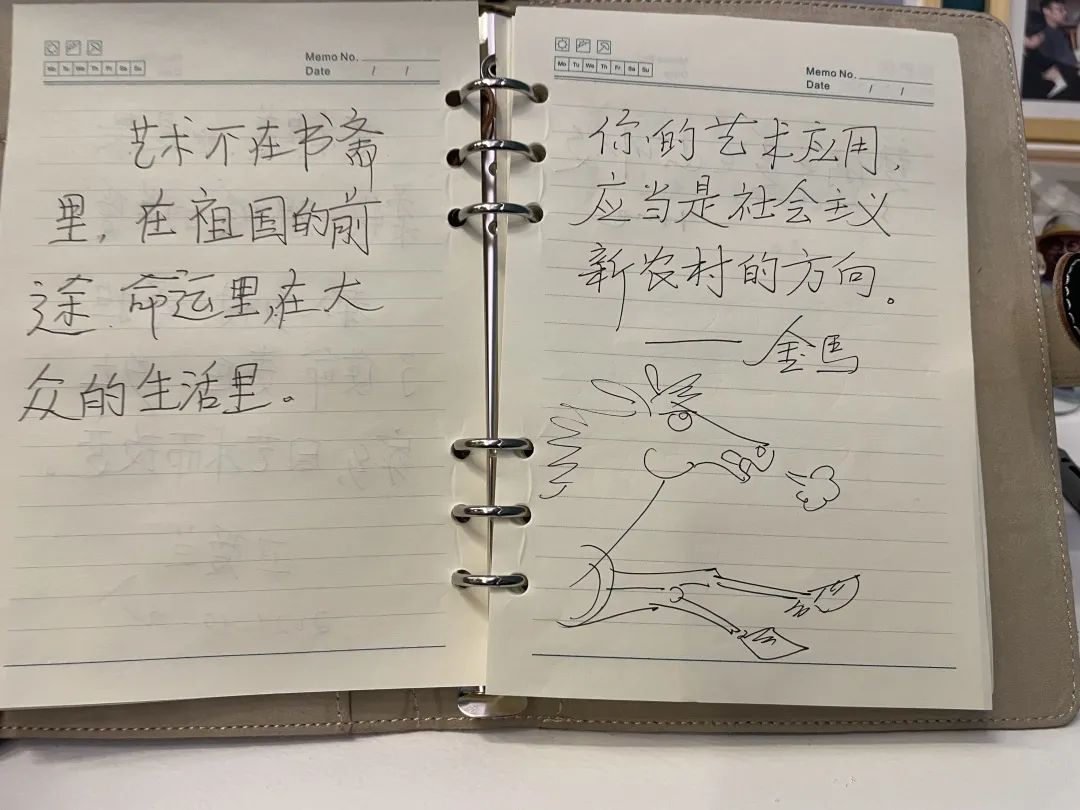 Memo No.
Date / /
Mo Tu We Th Fr Sa Su
艺术不在书斋
里,在祖国的前
途.命运里,在大
众的生活里。
Memo No.
Date / /
Mo Tu We Th Fr Sa Su
你的艺术应用,
应当是社会主义
新农村的方向。
——金馬